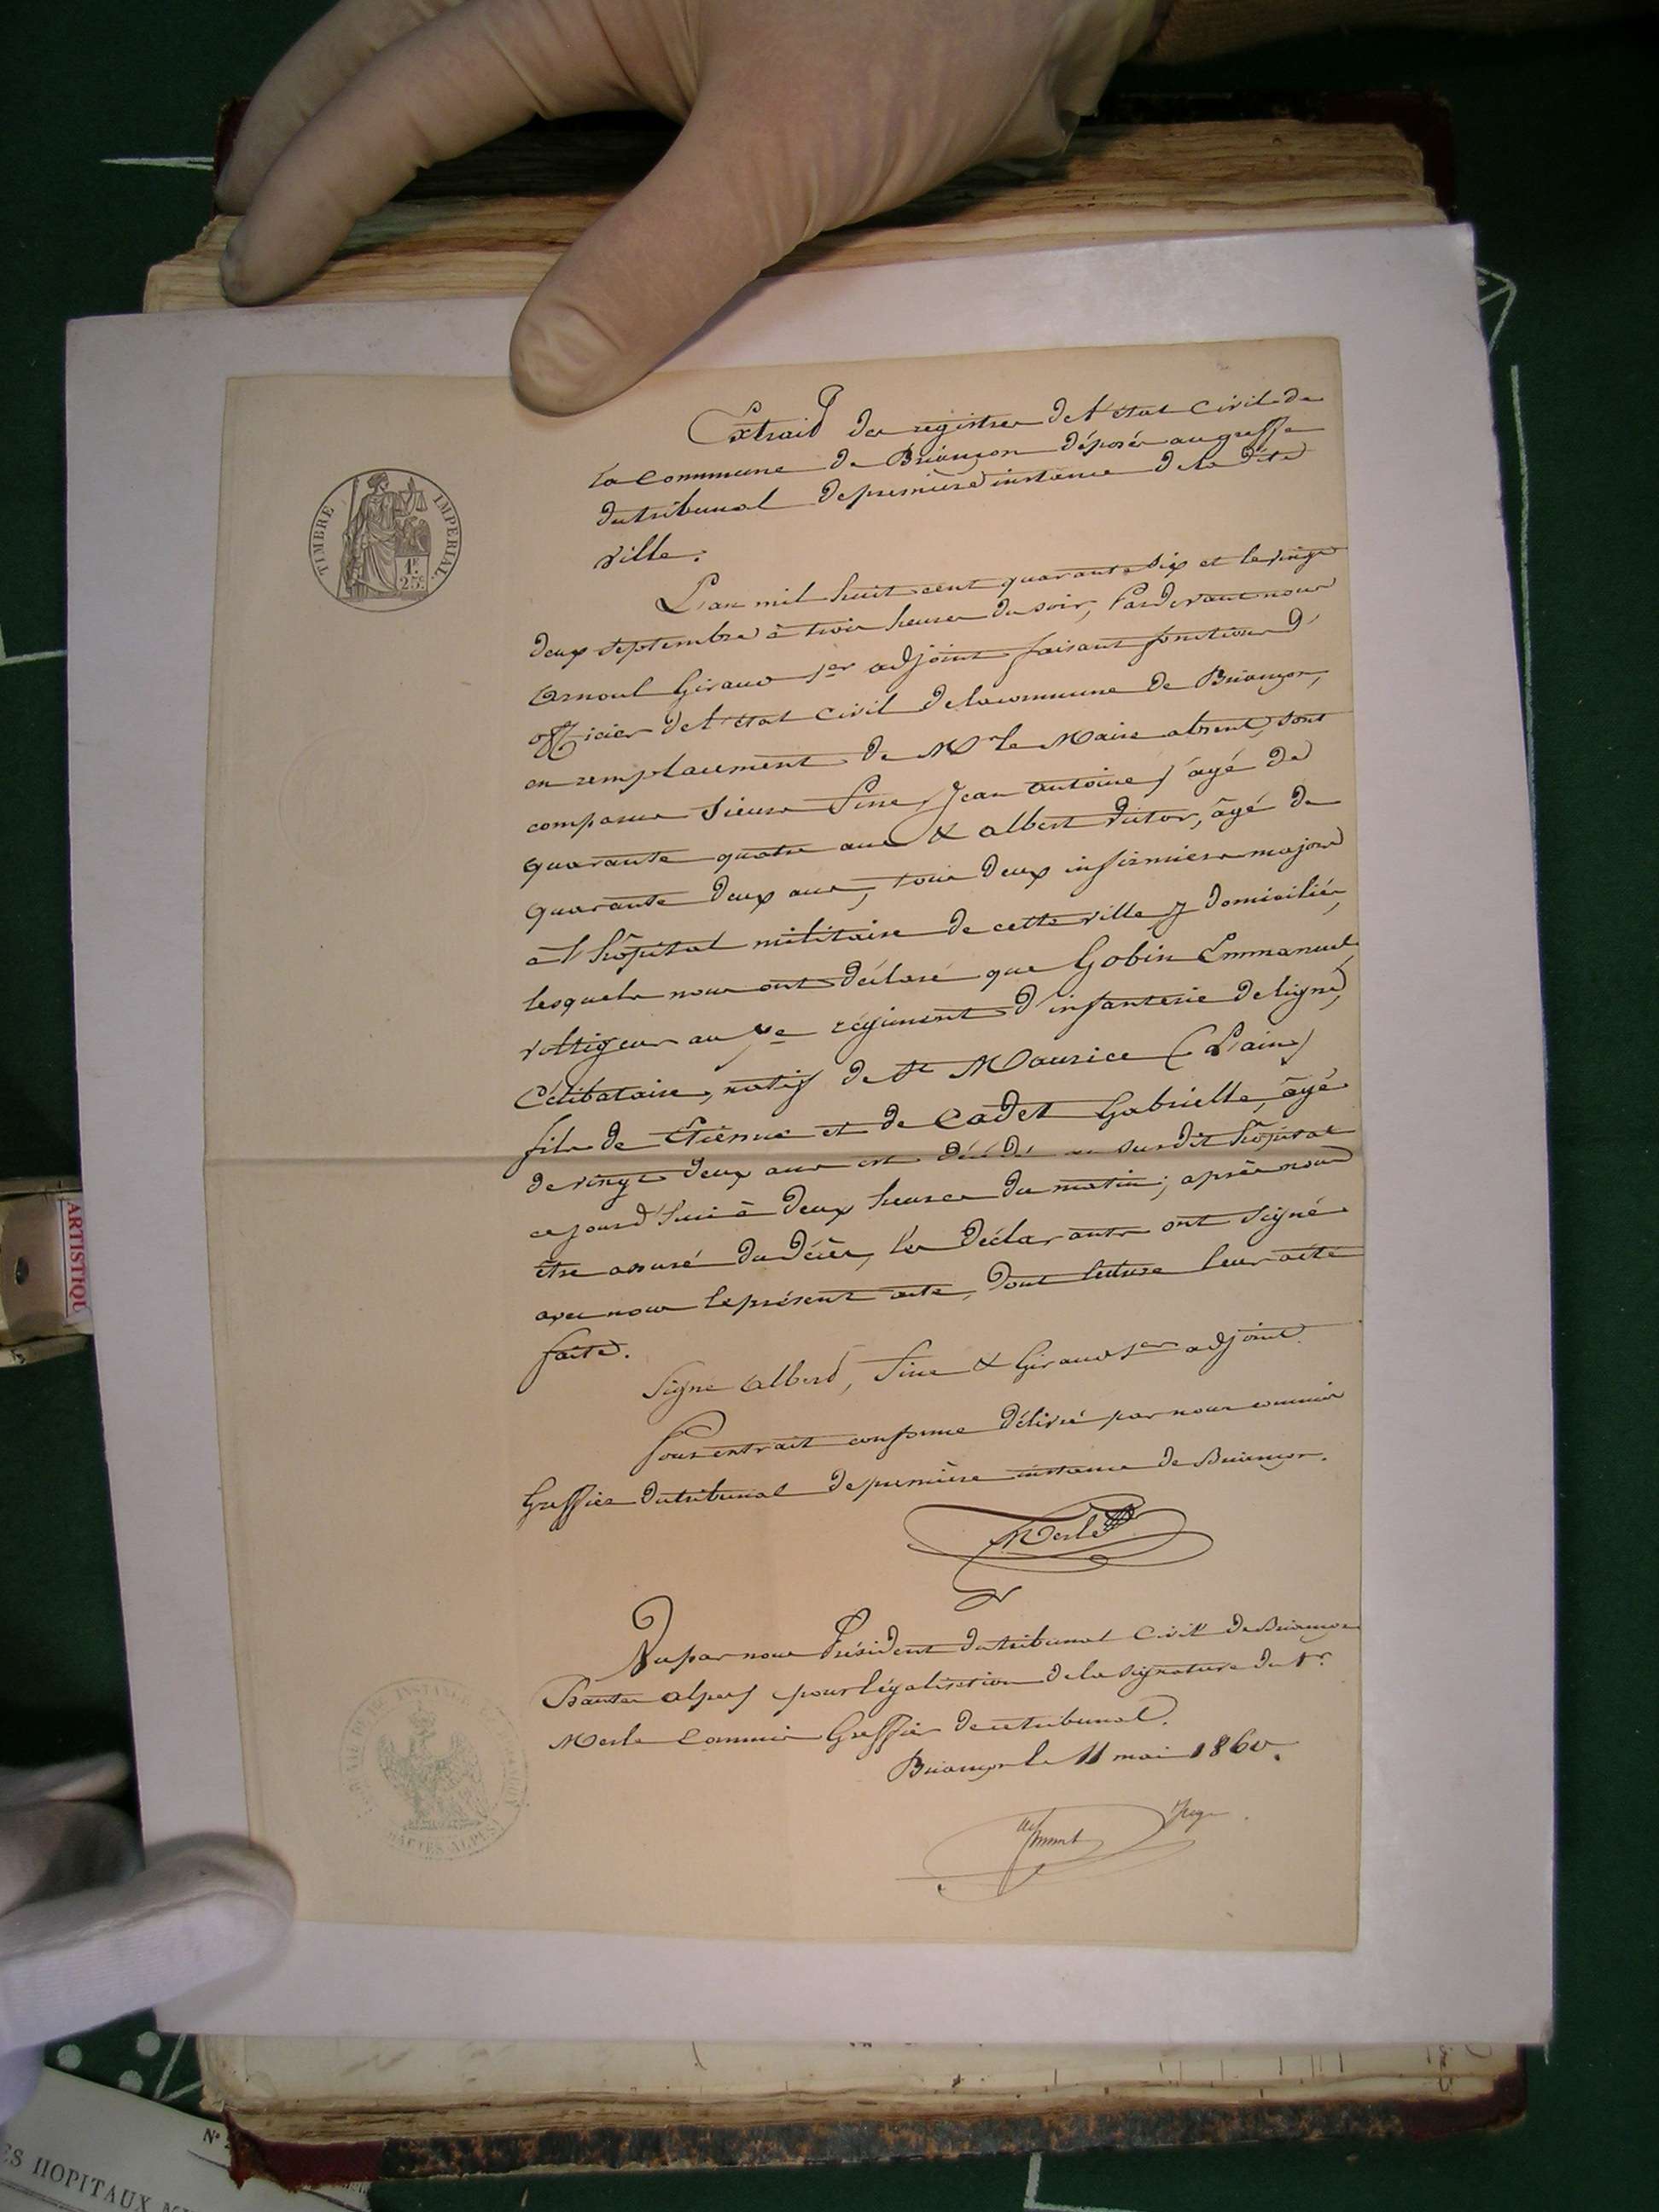 Extrait des registres de l'état Civil de
la Commune de Briançon déposés au greffe
du tribunal de première instance de la dite
ville.
TIMBRE IMPERIAL
1F.
25c.
L'an mil huit cent quarante six et le vingt
deux septembre à trois heures du soir, Pardevant nous
Arnoul Giraud 1er adjoint faisant fonctions d'
officier de l'état Civil de la commune de Briançon,
en remplacement de Mr le Maire absent, sont
comparus sieurs Fine Jean Antoine, âgé de
quarante quatre ans & Albert Victor, âgé de
quarante deux ans, tous deux infirmiers majors
à l'hôpital militaire de cette ville y domiciliés,
lesquels nous ont déclaré que Gobin Emmanuel,
voltigeur au régiment d'infanterie de ligne,
Célibataire, natif de St Maurice (L'ain)
fils de Etienne et de Cadet Gabrielle, âgé
de vingt deux ans est décédé au susdit hôpital
ce jourd'hui à deux heures du matin; après nous
être assuré du décès, les déclarants ont signé
avec nous le présent acte, dont lecture leur a été
faite.
Signé Albert, Fine & Giraud 1er adjoint.
Pour extrait conforme délivré par nous commis
Greffier du tribunal de première instance de Briançon.
Merle
Vu par nous Président du tribunal Civil de Briançon
Hautes Alpes, pour légalisation de la signature du Sr
Merle Commis Greffier de ce tribunal.
Briançon le 11 mai 1860.
HAUTES ALPES
ARTISTIQU
N°
ES HOPITAUX